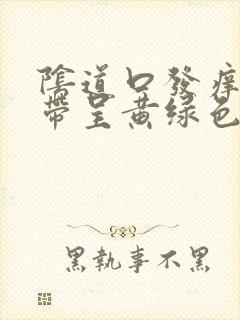 陰道口發癢
帶呈黃绿色
黑執事不黑